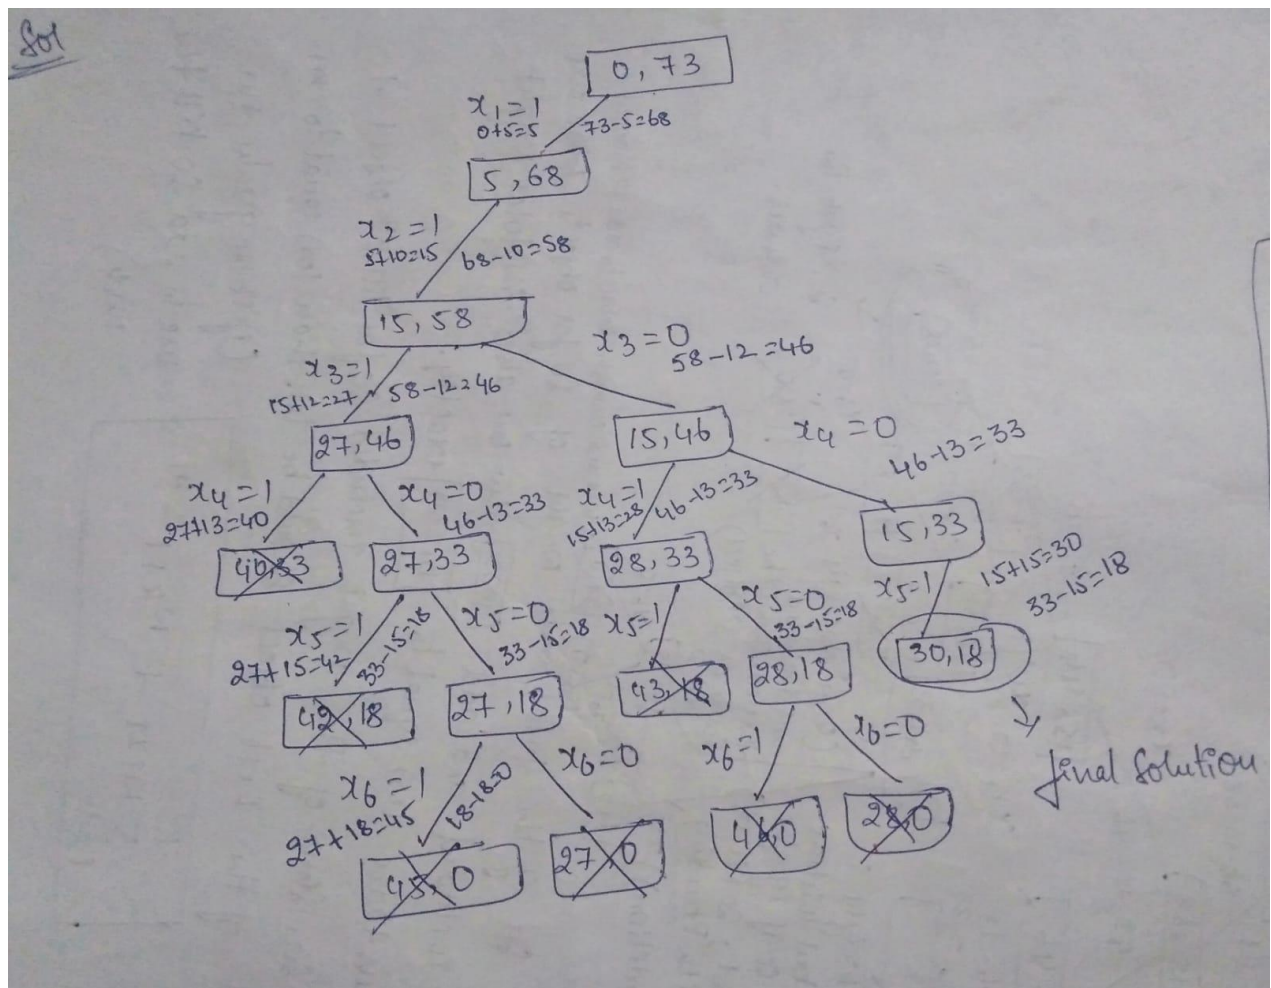 Sol
0, 73
x1=1
0+5=5
73-5=68
5, 68
x2=1
5+10=15
68-10=58
15, 58
x3=1
15+12=27
58-12=46
x3=0
58-12=46
27, 46
15, 46
x4=1
27+13=40
x4=0
46-13=33
x4=1
15+13=28
46-13=33
x4=0
46-13=33
40,33
27,33
28,33
15,33
x5=1
27+15=42
33-15=18
x5=0
33-15=18
x5=1
x5=0
33-15=18
x5=1
15+15=30
33-15=18
42,18
27,18
43,18
28,18
30,18
x6=1
27+18=45
18-18=0
x6=0
x6=1
x6=0
final Solution
45,0
27,0
28,0